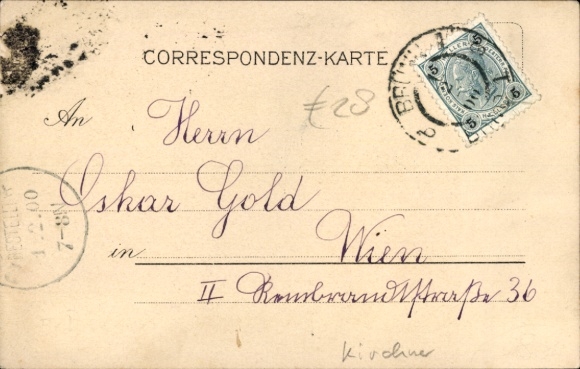 CORRESPONDENZ-KARTE
BRÜNN
An Herrn
£28
Oskar Gold
in Wien
II Rembrandtstraße 36
7-8N
Kirchner